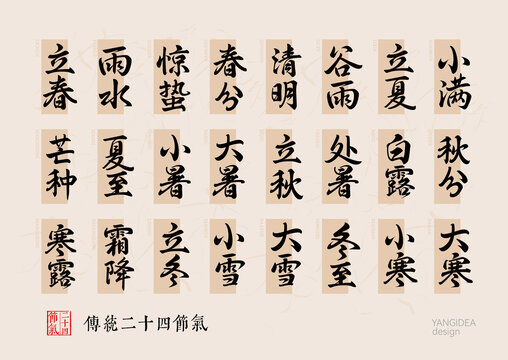 立春 雨水 惊蛰 春分 清明 谷雨 立夏 小满
芒种 夏至 小暑 大暑 立秋 处暑 白露 秋分
寒露 霜降 立冬 小雪 大雪 冬至 小寒 大寒
二十四節氣 傳統二十四節氣
YANGIDEA
design